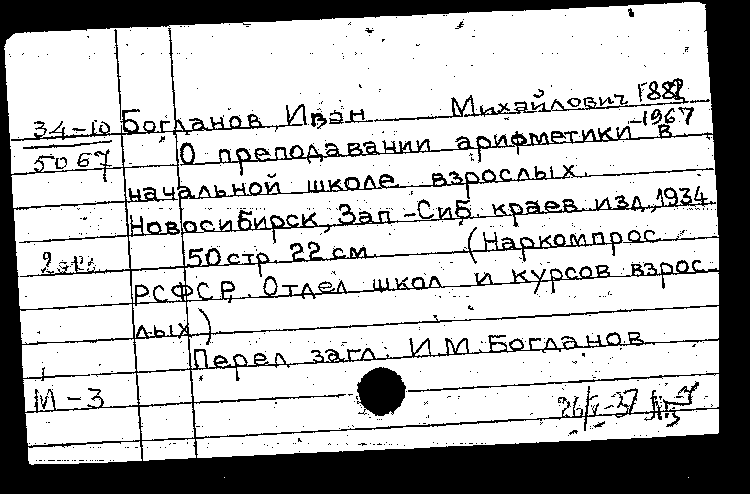 34-10
5067
Богданов, Иван Михайлович
-1967
О преподавании арифметики в
начальной школе взрослых.
Новосибирск, Зап-Сиб. краев. изд, 1934.
2 экз.
50 стр. 22 см. (Наркомпрос
РСФСР. Отдел школ и курсов взрос-
лых)
Перед загл: И.М. Богданов
М-3
26/V-37